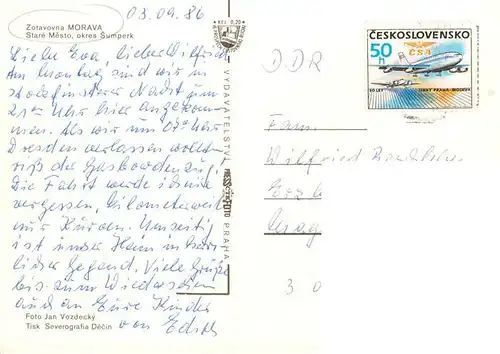 03.09.86
Zotavovna MORAVA
Staré Město, okres Šumperk
Liebe Eva, lieber Wilfried
Am Montag sind wir in
stockfinsterer Nacht um
21°° Uhr hier angekom-
men. Als wir um 07°° Uhr
Dresden verlassen wollten
riß der Gasbowdenzug.
Die Fahrt werde ich nie
vergessen, kilometerweit
nur Kurven.
ist unser Heim in herr-
licher Gegend. Viele Grüße
bis zum Wiedersehen
auch an Eure Kinder
von Edith
Foto Jan Vozdecký
Tisk Severografia Děčín
VYDAVATELSTVÍ PRESSFOTO PRAHA
DDR
Fam.
Wilfried
3 0
ČESKOSLOVENSKO
50 h
ČSA
50 LET LINKY PRAHA-MOSKVA